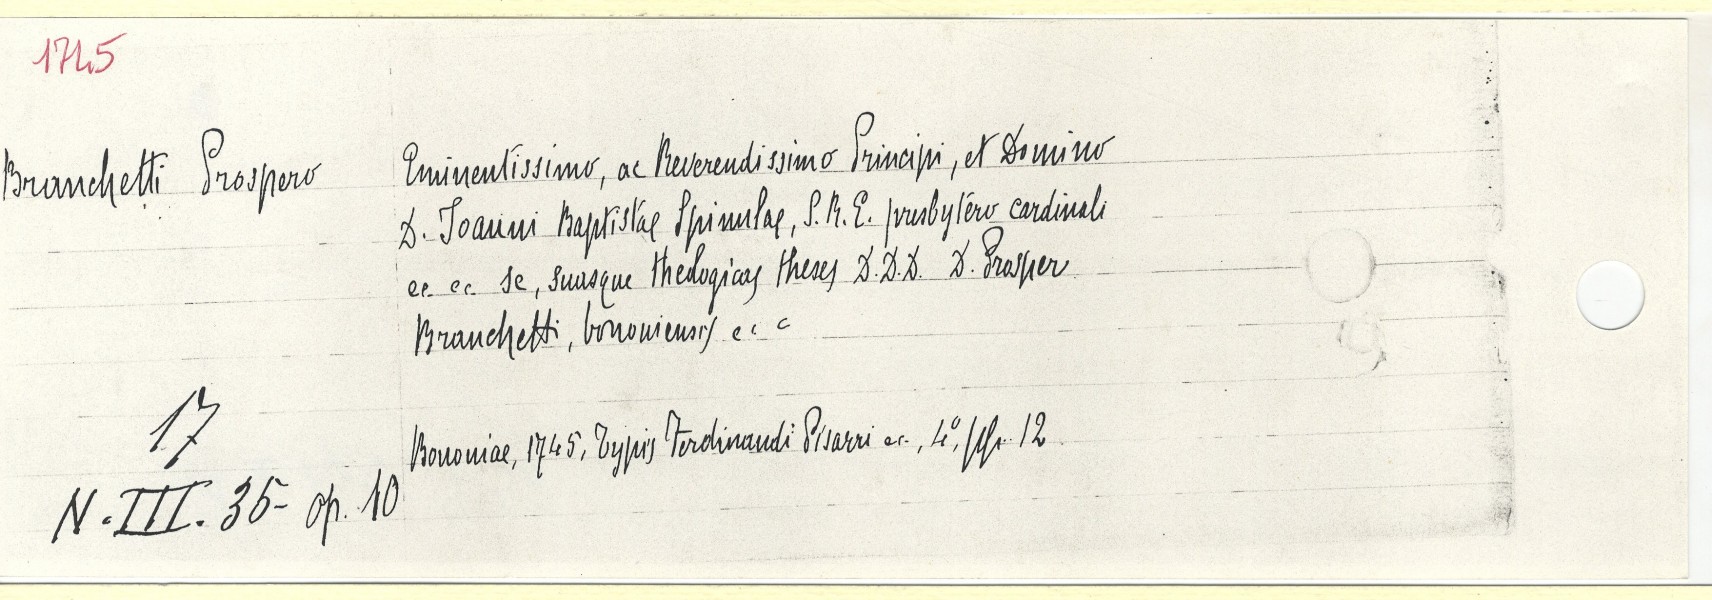 1745
Branchetti Prospero
Eminentissimo, ac Reverendissimo Principi, et Domino
D. Joanni Baptistae Spinulae, S.R.E. presbytero cardinali
ec. ec. se, suasque theologicas theses D.D.D. D. Prosper
Branchetti, bononiensis ec c
17
N.III.35- op. 10
Bononiae, 1745, Typis Ferdinandi Pisarri ec., 4°, pp. 12